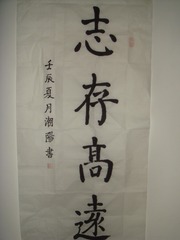 志存高遠
壬辰夏月潮陽書